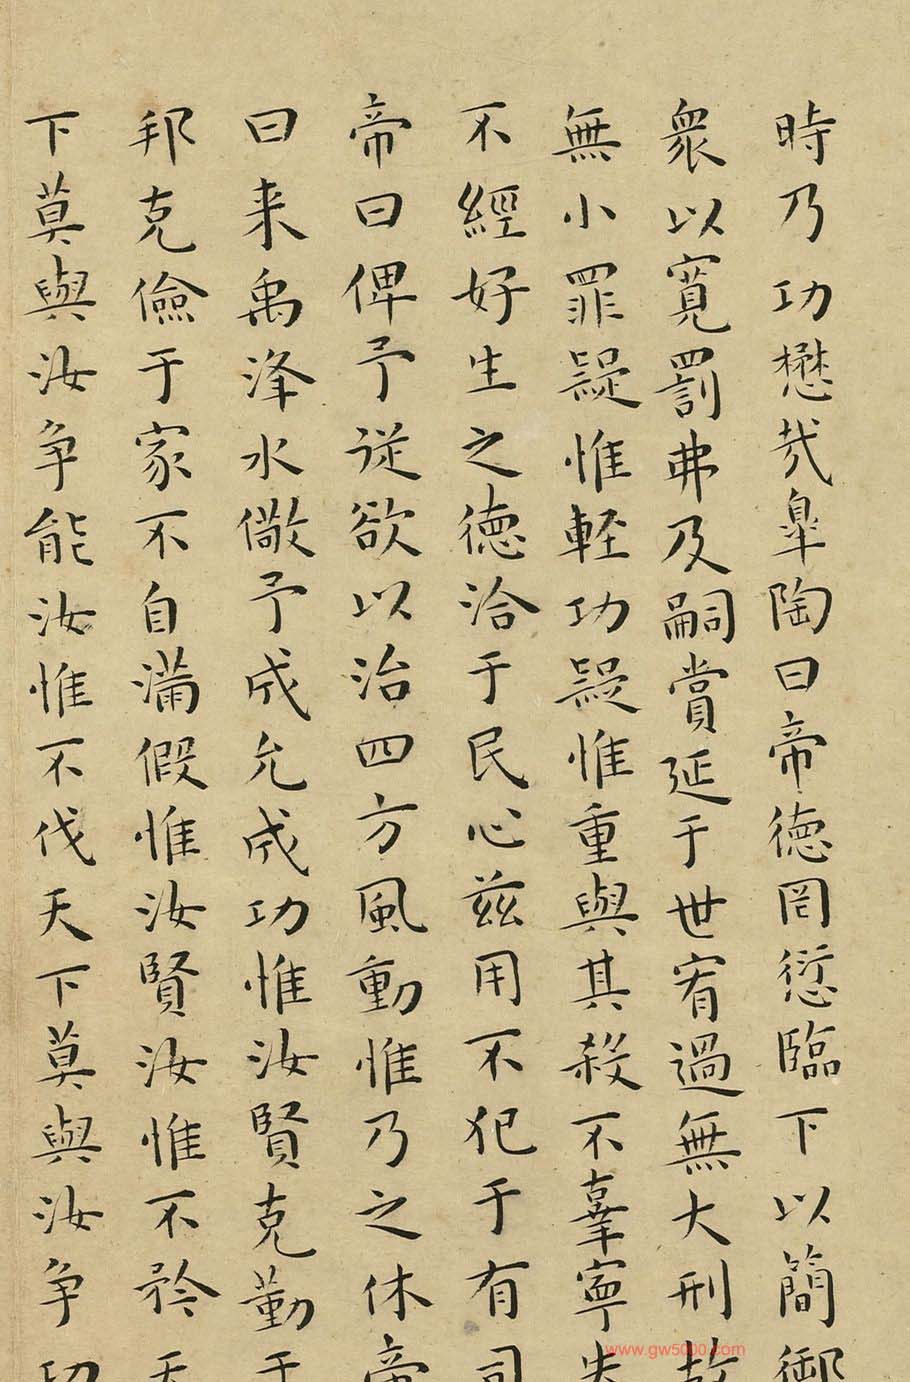 時乃功懋哉臯陶曰帝德罔愆臨下以簡御
衆以寬罰弗及嗣賞延于世宥過無大刑故
無小罪疑惟輕功疑惟重與其殺不辜寧失
不經好生之德洽于民心兹用不犯于有司
帝曰俾予從欲以治四方風動惟乃之休帝
曰来禹洚水儆予成允成功惟汝賢克勤于
邦克儉于家不自滿假惟汝賢汝惟不矜天
下莫與汝争能汝惟不伐天下莫與汝争功
www.gw5000.com